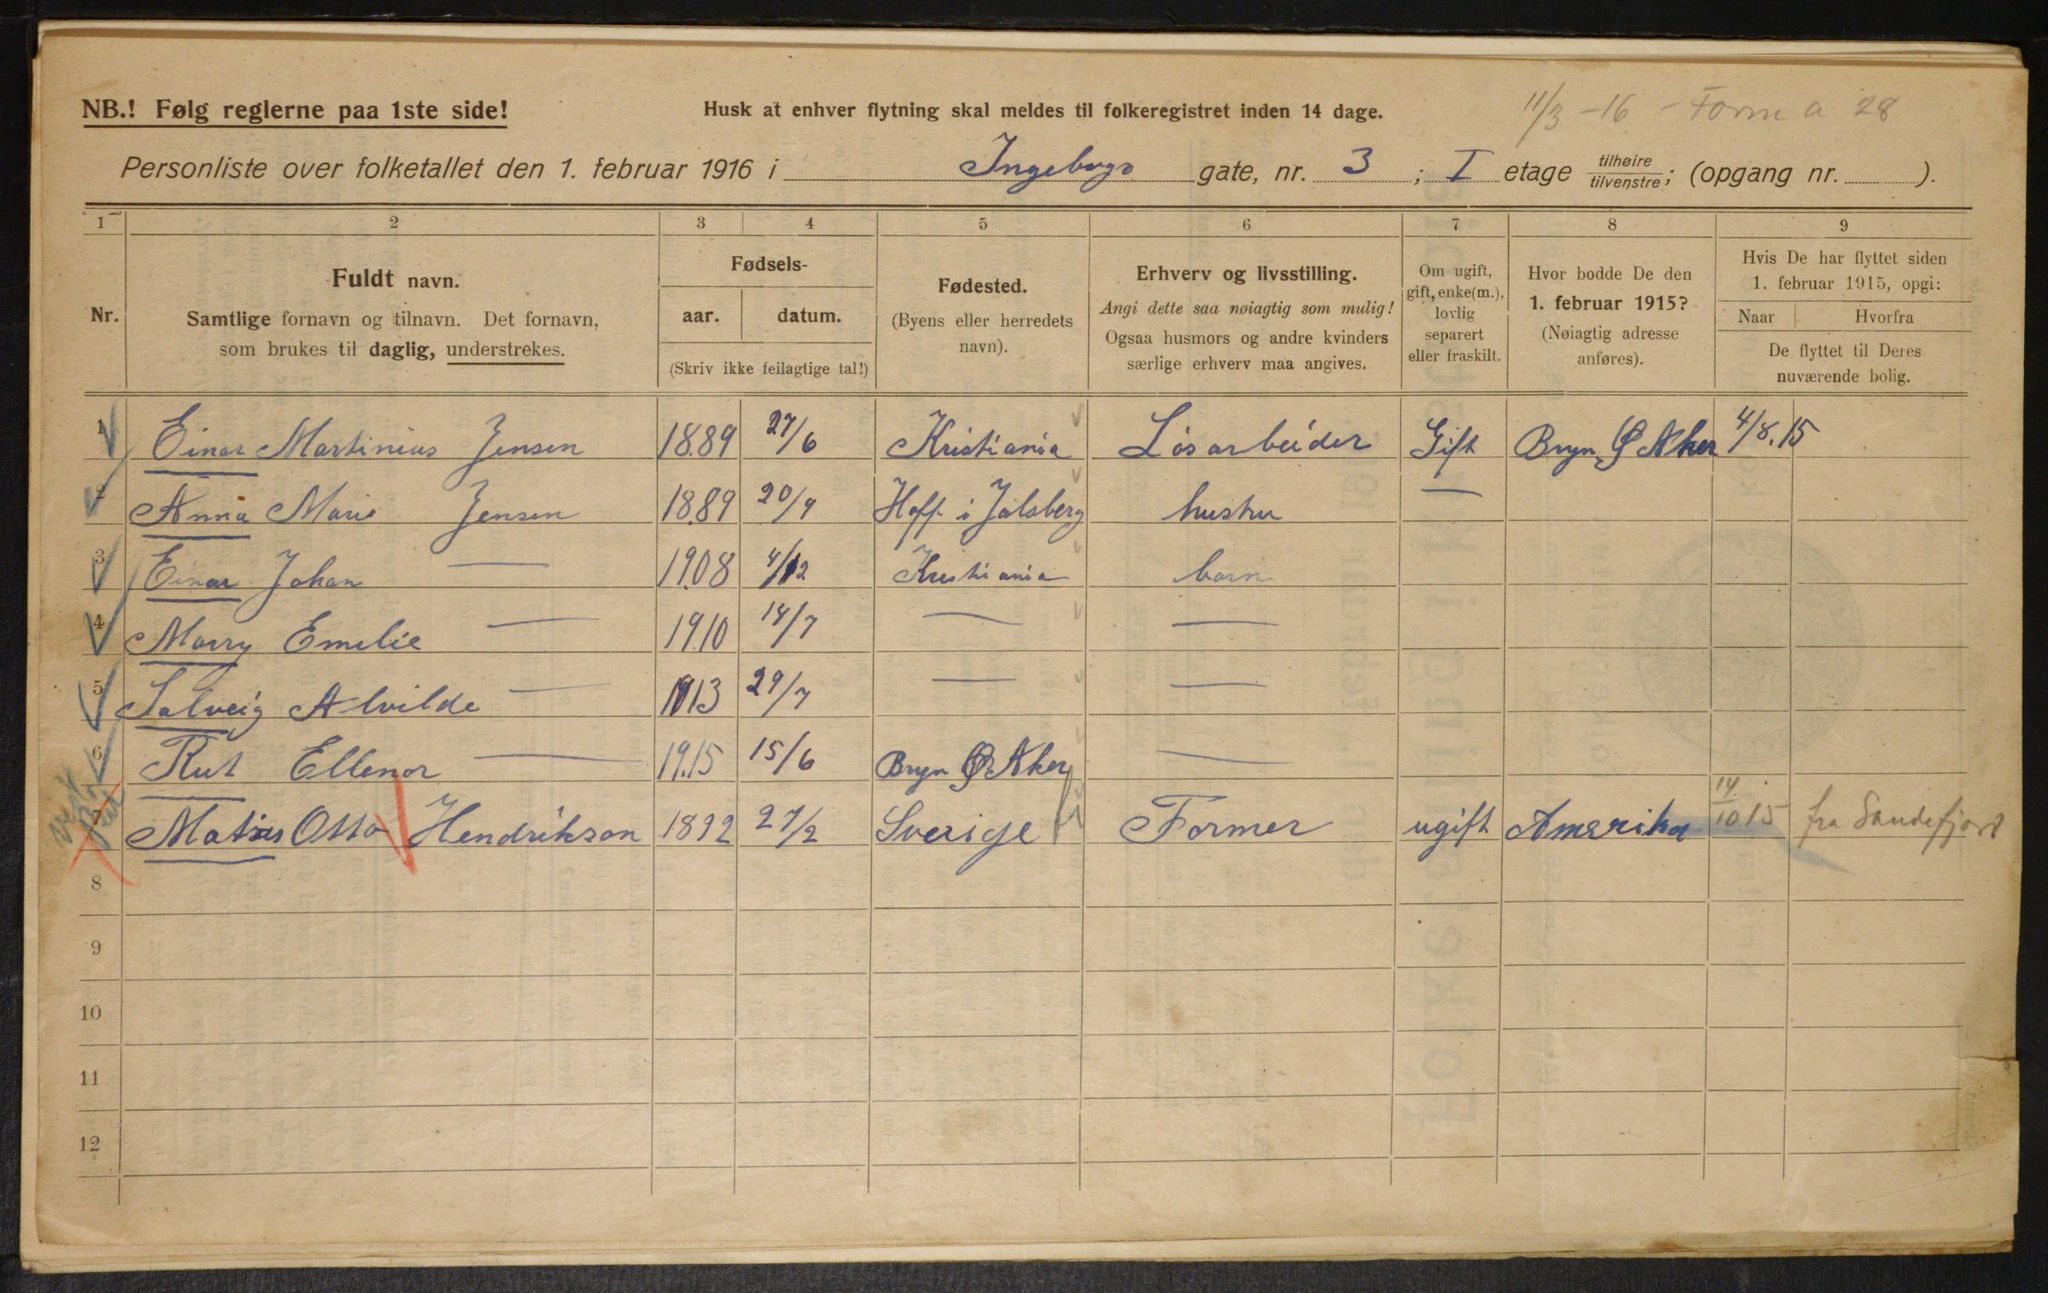 NB.! Følg reglerne paa 1ste side!
Husk at enhver flytning skal meldes til folkeregistret inden 14 dage.
11/3 -16 - Form a 28
Personliste over folketallet den 1. februar 1916 i Ingebogs gate, nr. 3 ; I etage tilhøire/tilvenstre; (opgang nr. ).
1 2 3 4 5 6 7 8 9
Nr.
Fuldt navn.
Samtlige fornavn og tilnavn. Det fornavn,
som brukes til daglig, understrekes.
Fødsels-
aar. datum.
(Skriv ikke feilagtige tal!)
Fødested.
(Byens eller herredets
navn).
Erhverv og livsstilling.
Angi dette saa nøiagtig som mulig!
Ogsaa husmors og andre kvinders
særlige erhverv maa angives.
Om ugift,
gift, enke(m.),
lovlig
separert
eller fraskilt.
Hvor bodde De den
1. februar 1915?
(Nøiagtig adresse
anføres).
Hvis De har flyttet siden
1. februar 1915, opgi:
Naar Hvorfra
De flyttet til Deres
nuværende bolig.
1 Einar Martinius Jensen 1889 27/6 Kristiania Løsarbeider Gift Bryn Ø Aker 4/8.15
2 Anna Marie Jensen 1889 20/9 Hoff i Jalsberg hustru —
3 Einar Johan — 1908 4/12 Kristiania barn
4 Marry Emelie — 1910 14/7 — —
5 Solveig Alvilde — 1913 29/7 — —
6 Rut Ellenor — 1915 15/6 Bryn Ø Aker —
7 Matias Otto Hendrikson 1892 27/2 Sverige Former ugift Amerika 14/10 15 fra Sandefjord
8
9
10
11
12